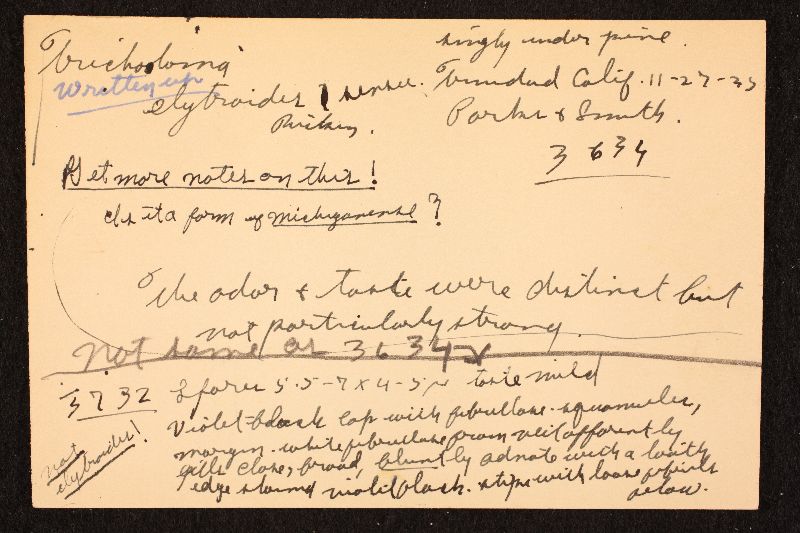 Tricholoma
Written up
elytroides sensu
Ricken.
singly under pine.
Trinidad Calif. 11-27-35
Parks & Smith.
3634
Get more notes on this!
Is it a form of michiganense?
The odor & taste were distinct but
not particularly strong.
Not same as 3634
3732 Spores 5.5-7 x 4-5 µ taste mild
Violet-black cap with fibrillose-squamules,
margin white fibrillose from veil apparently
gills close, broad, bluntly adnate with a tooth
edge stained violet black. stipe with loose fibrils
below.
not
elytroides!